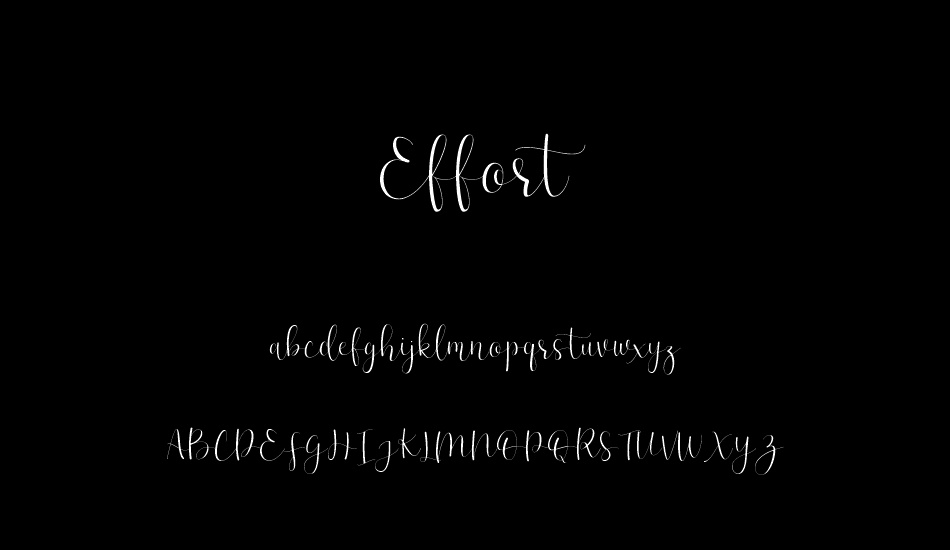 Effort
abcdefghijklmnopqrstuvwxyz
ABCDEFGHIJKLMNOPQRSTUVWXYZ